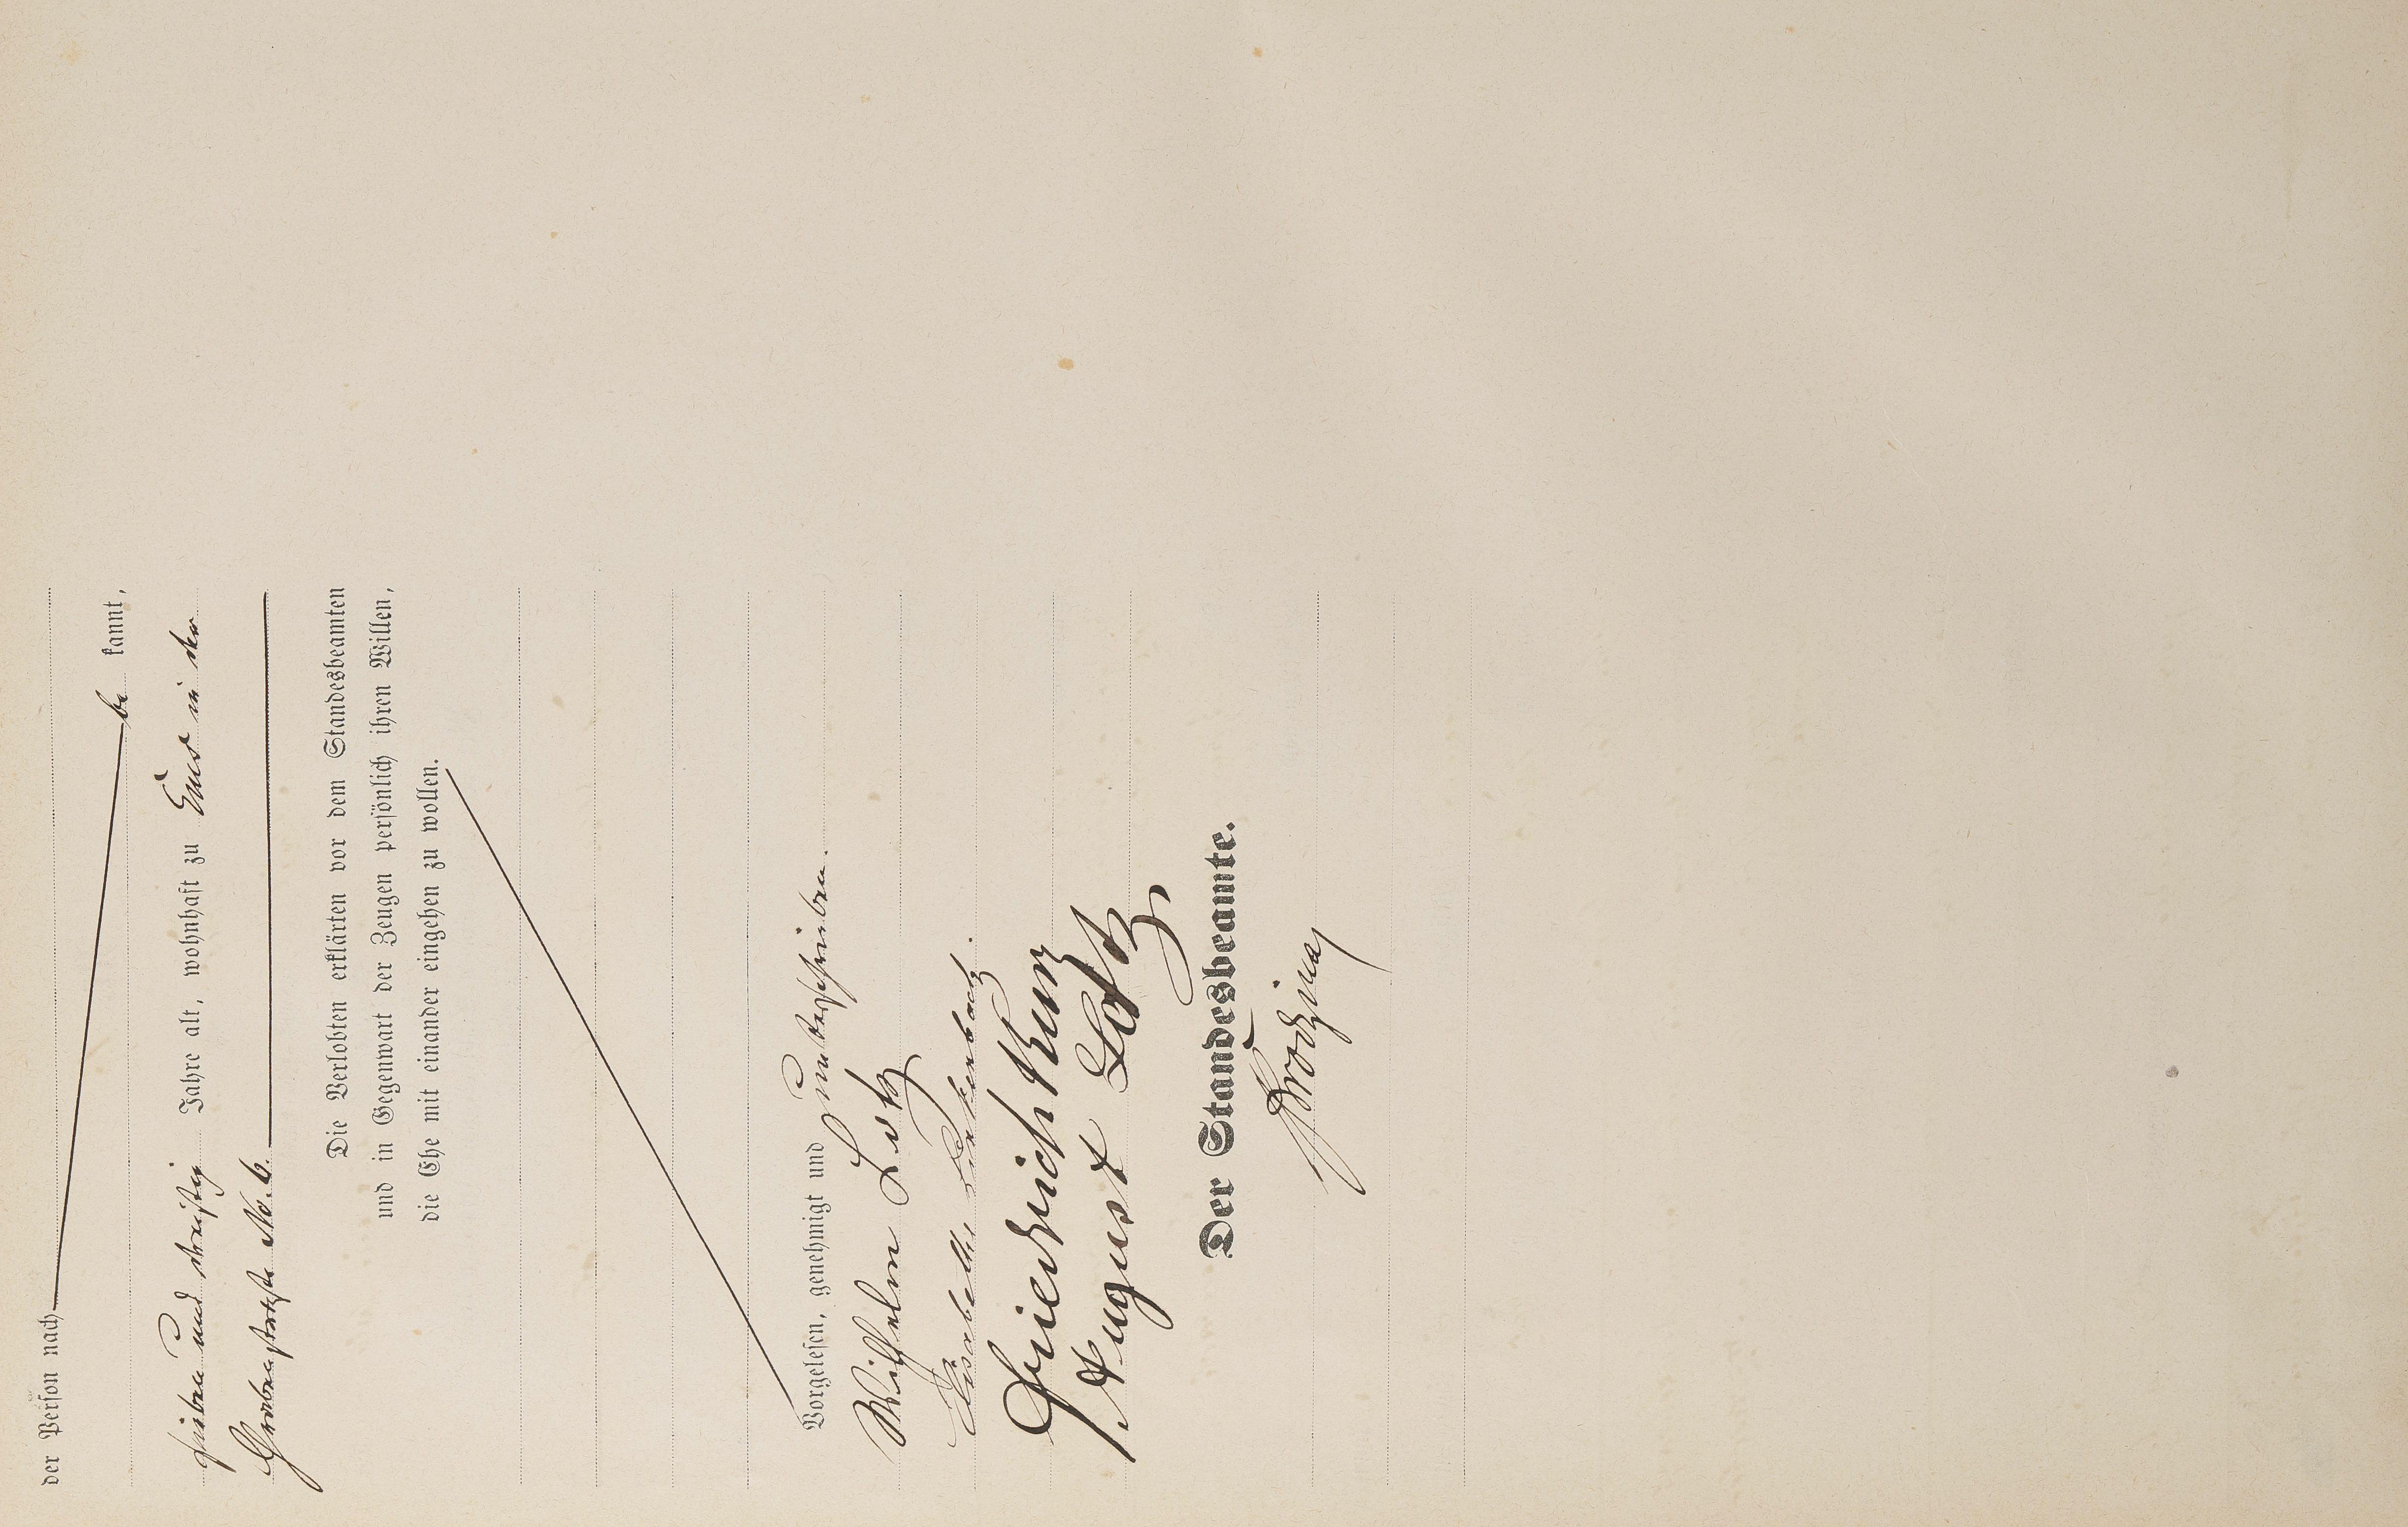 der Person nach
be kannt,
sieben und dreißig Jahre alt, wohnhaft zu Ems in der
Grabenstraße No. 6.
Die Verlobten erklärten vor dem Standesbeamten
und in Gegenwart der Zeugen persönlich ihren Willen,
die Ehe mit einander eingehen zu wollen.
Vorgelesen, genehmigt und unterschrieben.
Wilhelm Lotz
Friedrich Kunz
August Lotz
Der Standesbeamte.